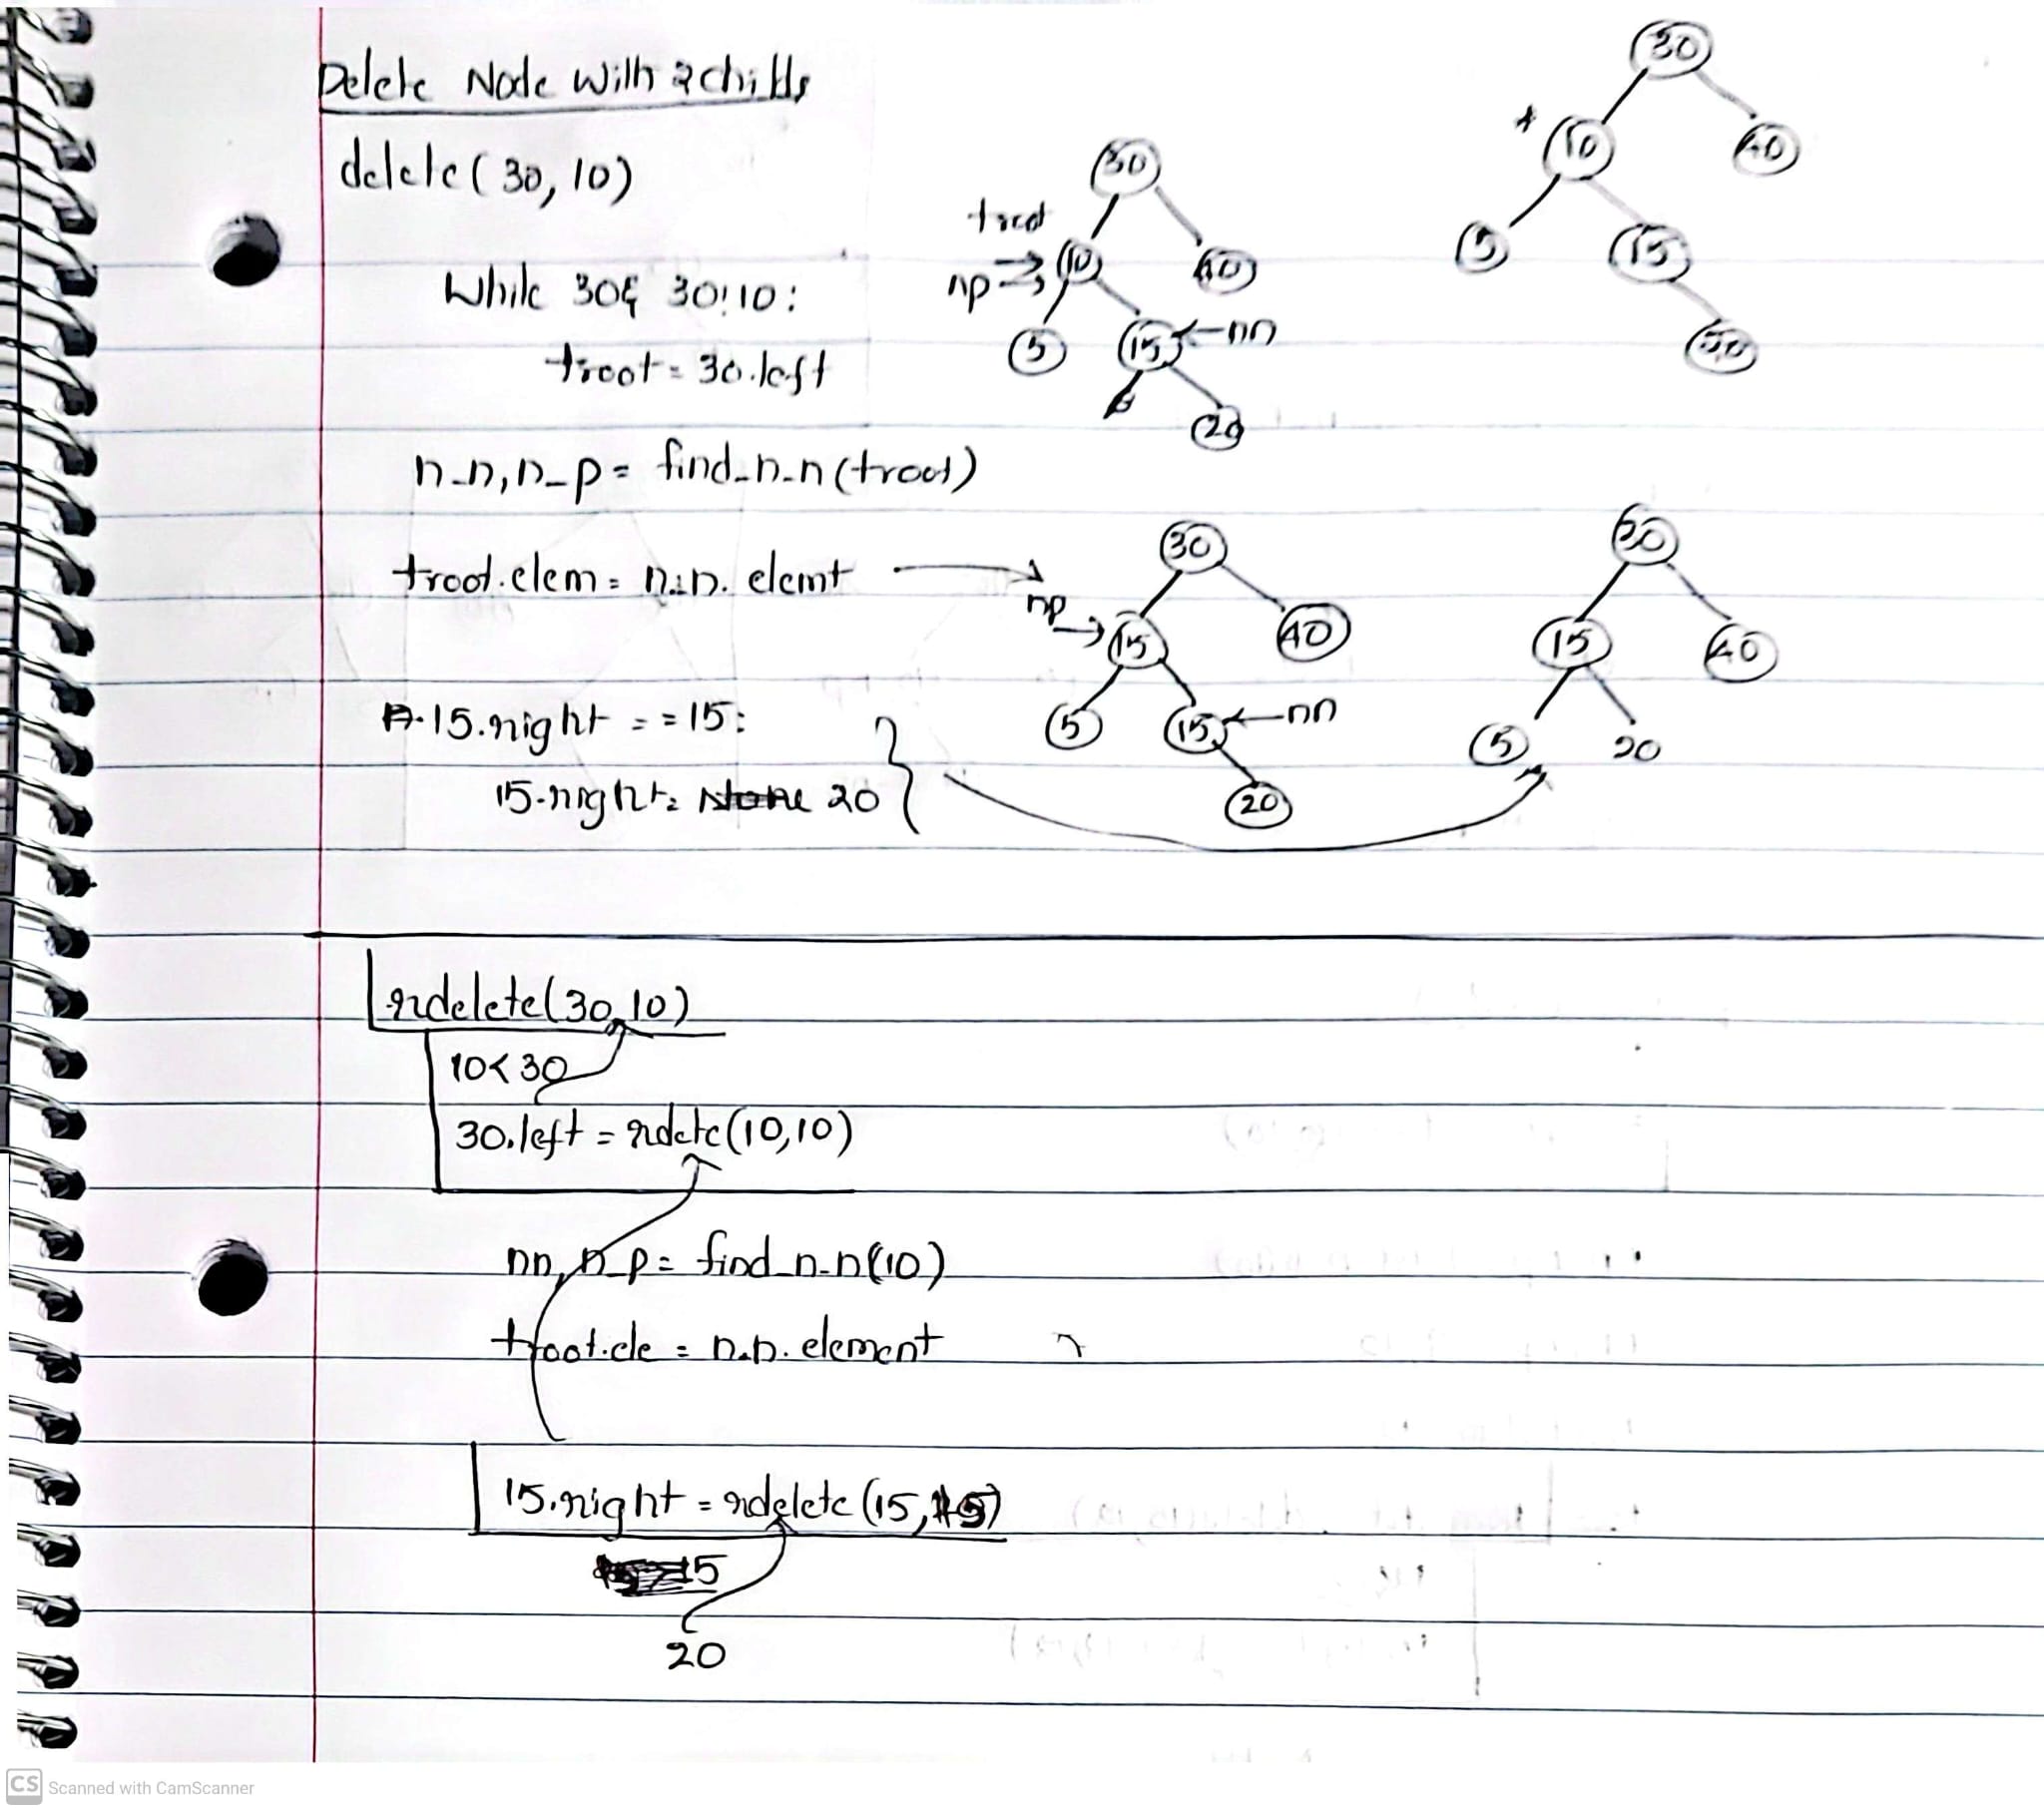 Delete Node With 2 childs
delete(30, 10)
While 30 & 30!10:
troot = 30.left
n_n, n_p = find_n_n(troot)
troot.elem = n.n. elemt
15.right == 15:
15.right = None 20
30
10
40
5
15
20
30
troot
np
10
40
5
15
nn
20
30
np
15
40
5
15
nn
20
30
15
40
5
20
rdelete(30,10)
10<30
30.left = rdete(10,10)
nn, n_p = find_n_n(10)
troot.ele = n.n. element
15.right = rdelete(15, 15)
15
20
CS Scanned with CamScanner